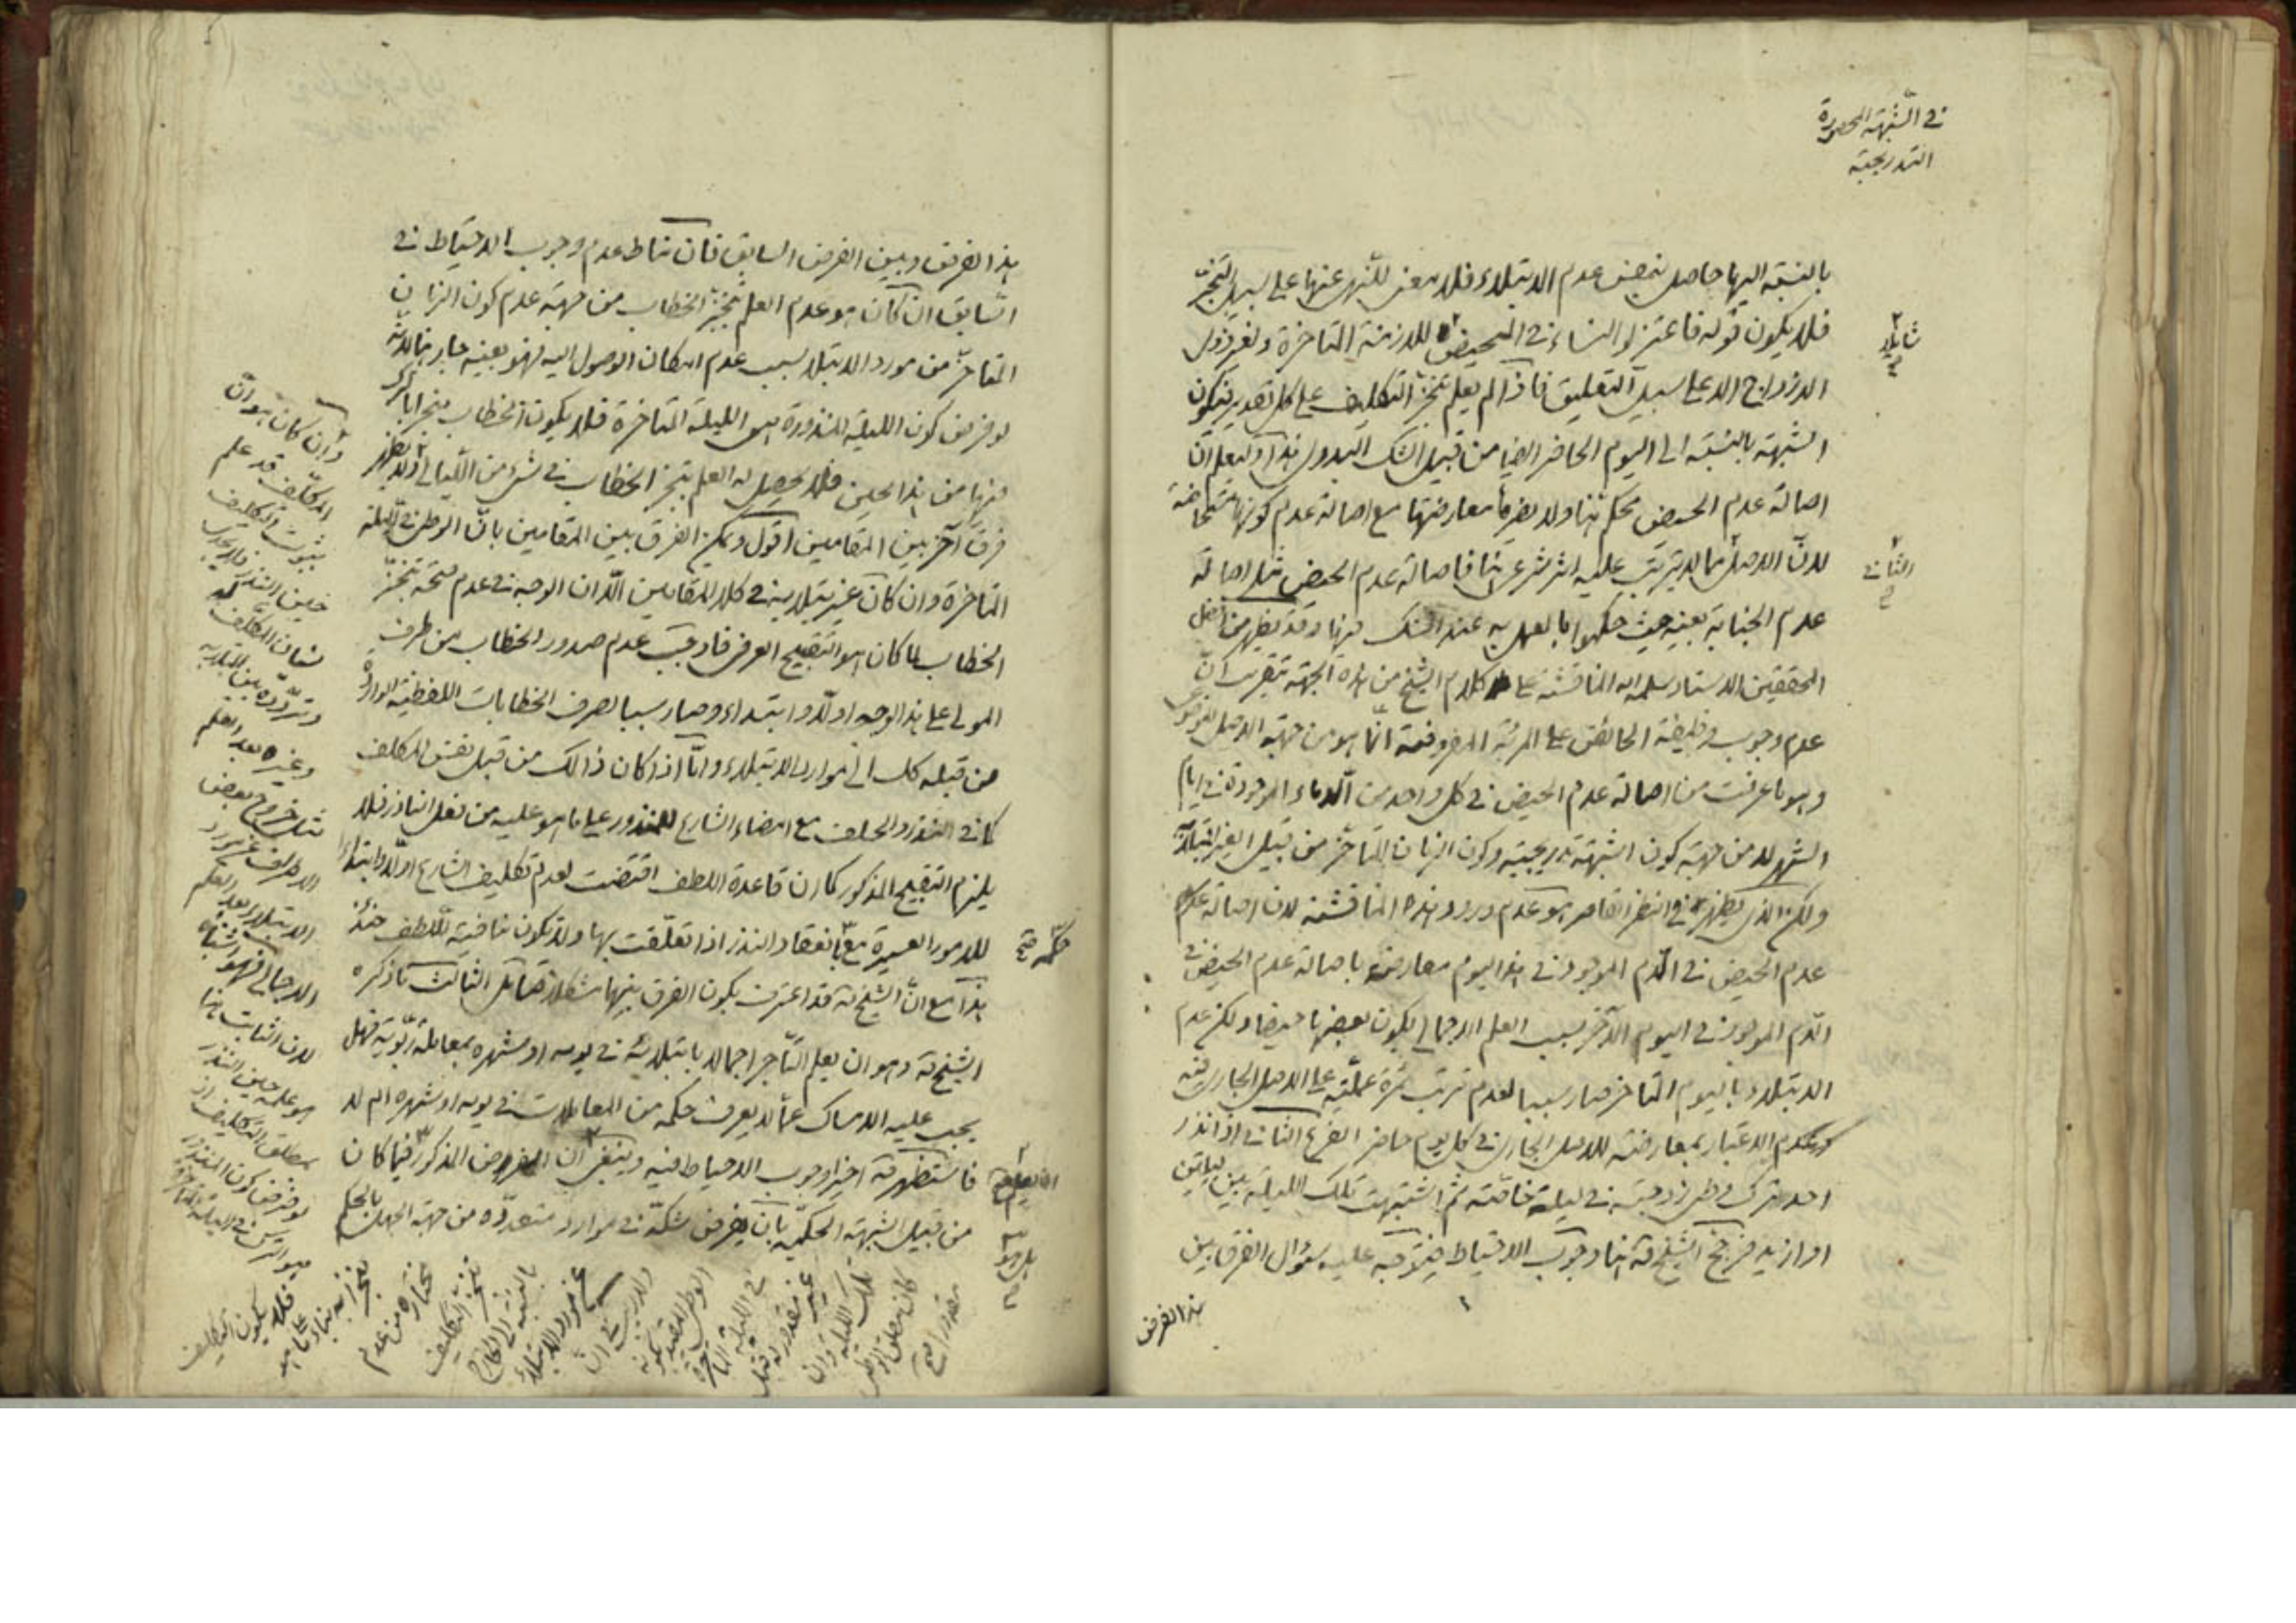 في الشبهة المحصورة
التدريجية
بالنسبة اليها حاصل بنقص عدم الابتلاء فلا معنى للنهي عنها على سبيل التنجز
فلا يكون قوله فاعتزلوا النساء في المحيض للازمنة المتاخرة ولغير ذوى
الازواج الا على سبيل التعليق فاذا لم يعلم تنجز التكليف على كل تقدير فيكون
الشبهة بالنسبة الى اليوم الحاضر ايضا من قبيل الشك البدوى هذا وليعلم ان
اصالة عدم الحيض محكم هنا ولا يضرها معارضتها مع اصالة عدم كونها مستحاضة
لان الاصل مما لا يترتب عليه اثر شرعى هنا فاصالة عدم الحيض مثل اصالة
عدم الجنابة بعينه حيث حكموا بالعمل به عند الشك فيها وقد يظهر من افضل
المحققين الاستاد سلمه الله المناقشة على كلام الشيخ من هذه الجهة بتقريب ان
عدم وجوب وظيفة الحائض على المرئة المفروضة انما هو من جهة الاصل الموضوعى
وهو ما عرفت من اصالة عدم الحيض في كل واحد من الدماء الموجودة في ايام
الشهر لا من جهة كون الشبهة تدريجية وكون الزمان المتاخر من قبيل الغير المبتلابه
ولكن الذى يظهر في النظر القاصر هو عدم ورود هذه المناقشة لان اصالة عدم
عدم الحيض في الدم الموجود في هذا اليوم معارضة باصالة عدم الحيض في
الدم الموجود في اليوم الآخر بسبب العلم الاجمالى بكون بعضها حيضا ولكن عدم
الابتلاء باليوم المتاخر صار سببا لعدم ترتب ثمرة عملية على الاصل الجارى فيه
وعدم الاعتبار بمعارضته للاصل الجارى في كل يوم حاضر الفرع الثانى اذا نذر
احد بترك وطى زوجته في ليلة خاصة ثم اشتبهت تلك الليلة بين ليلتين
او ازيد فرجح الشيخ ره هنا وجوب الاحتياط فيتوجه عليه سؤال الفرق بين
هذا الفرض
الثانى
هذا الفرض وبين الفرض السابق فان مناط عدم وجوب الاحتياط في
السابق ان كان هو عدم العلم بتنجز الخطاب من جهة عدم كون الزمان
المتاخر من مورد الابتلاء بسبب عدم امكان الوصول اليه فهو بعينه جار هنا لانه
لو فرض كون الليلة المنذورة هى الليلة المتاخرة فلا يكون الخطاب منجزا بالترك
فيها من هذا الحين فلا يحصل له العلم بتنجز الخطاب في شىء من الليالى ولا يظهر
فرق آخر بين المقامين اقول ويمكن الفرق بين المقامين بان الوطى في الليلة
المتاخرة وان كان غير مبتلا به في كلا المقامين الا ان الوجه في عدم صحة تنجز
الخطاب لما كان هو التقبيح العرفى فاوجب عدم صدور الخطاب من طرف
المولى على هذا الوجه اولا وابتداء وصار سببا لصرف الخطابات اللفظية الواردة
من قبله كك الى موارد الابتلاء واما اذا كان ذالك من قبل نفس المكلف
كما في النذر والحلف مع امضاء الشارع للمنذور على ما هو عليه من فعل الناذر فلا
يلزم التقبيح المذكور كما ان قاعدة اللطف اقتضت لعدم تكليف الشارع اولا وابتداء
للامور العسيرة مع انعقاد النذر اذا تعلقت بها ولا تكون منافية للطف حينئذ
هذا مع ان الشيخ ره قد اعترف بكون الفرق بينهما مشكلا فتامل الثالث ما ذكره
الشيخ ره وهو ان يعلم التاجر اجمالا بابتلائه في يومه او شهره بمعاملة ربوية فهل
يجب عليه الامساك عما لا يعرف حكمه من المعاملات في يومه او شهره ام لا
فاستظهر ره اخيرا وجوب الاحتياط فيه وينبغى ان المفروض المذكور فيما كان
من قبيل الشبهة الحكمية بان يفرض شكه في موارد متعددة من جهة الجهل بالحكم
وان كان هو ان
المكلف قد علم
بثبوت التكليف
حين النذر فلا يجدى
نسيان المكلف له
وتردده بين المبتلا به
وغيره بعد العلم
مثل خروج بعض
الاطراف عن مورد
الابتلاء بعد العلم
الاجمالى فهو اشتباه
لان الثابت هنا
هو علمه حين النذر
بمطلق التكليف اذ
لو فرض كون المنذور
هو الترك في الليلة المتاخرة
فلا يكون التكليف